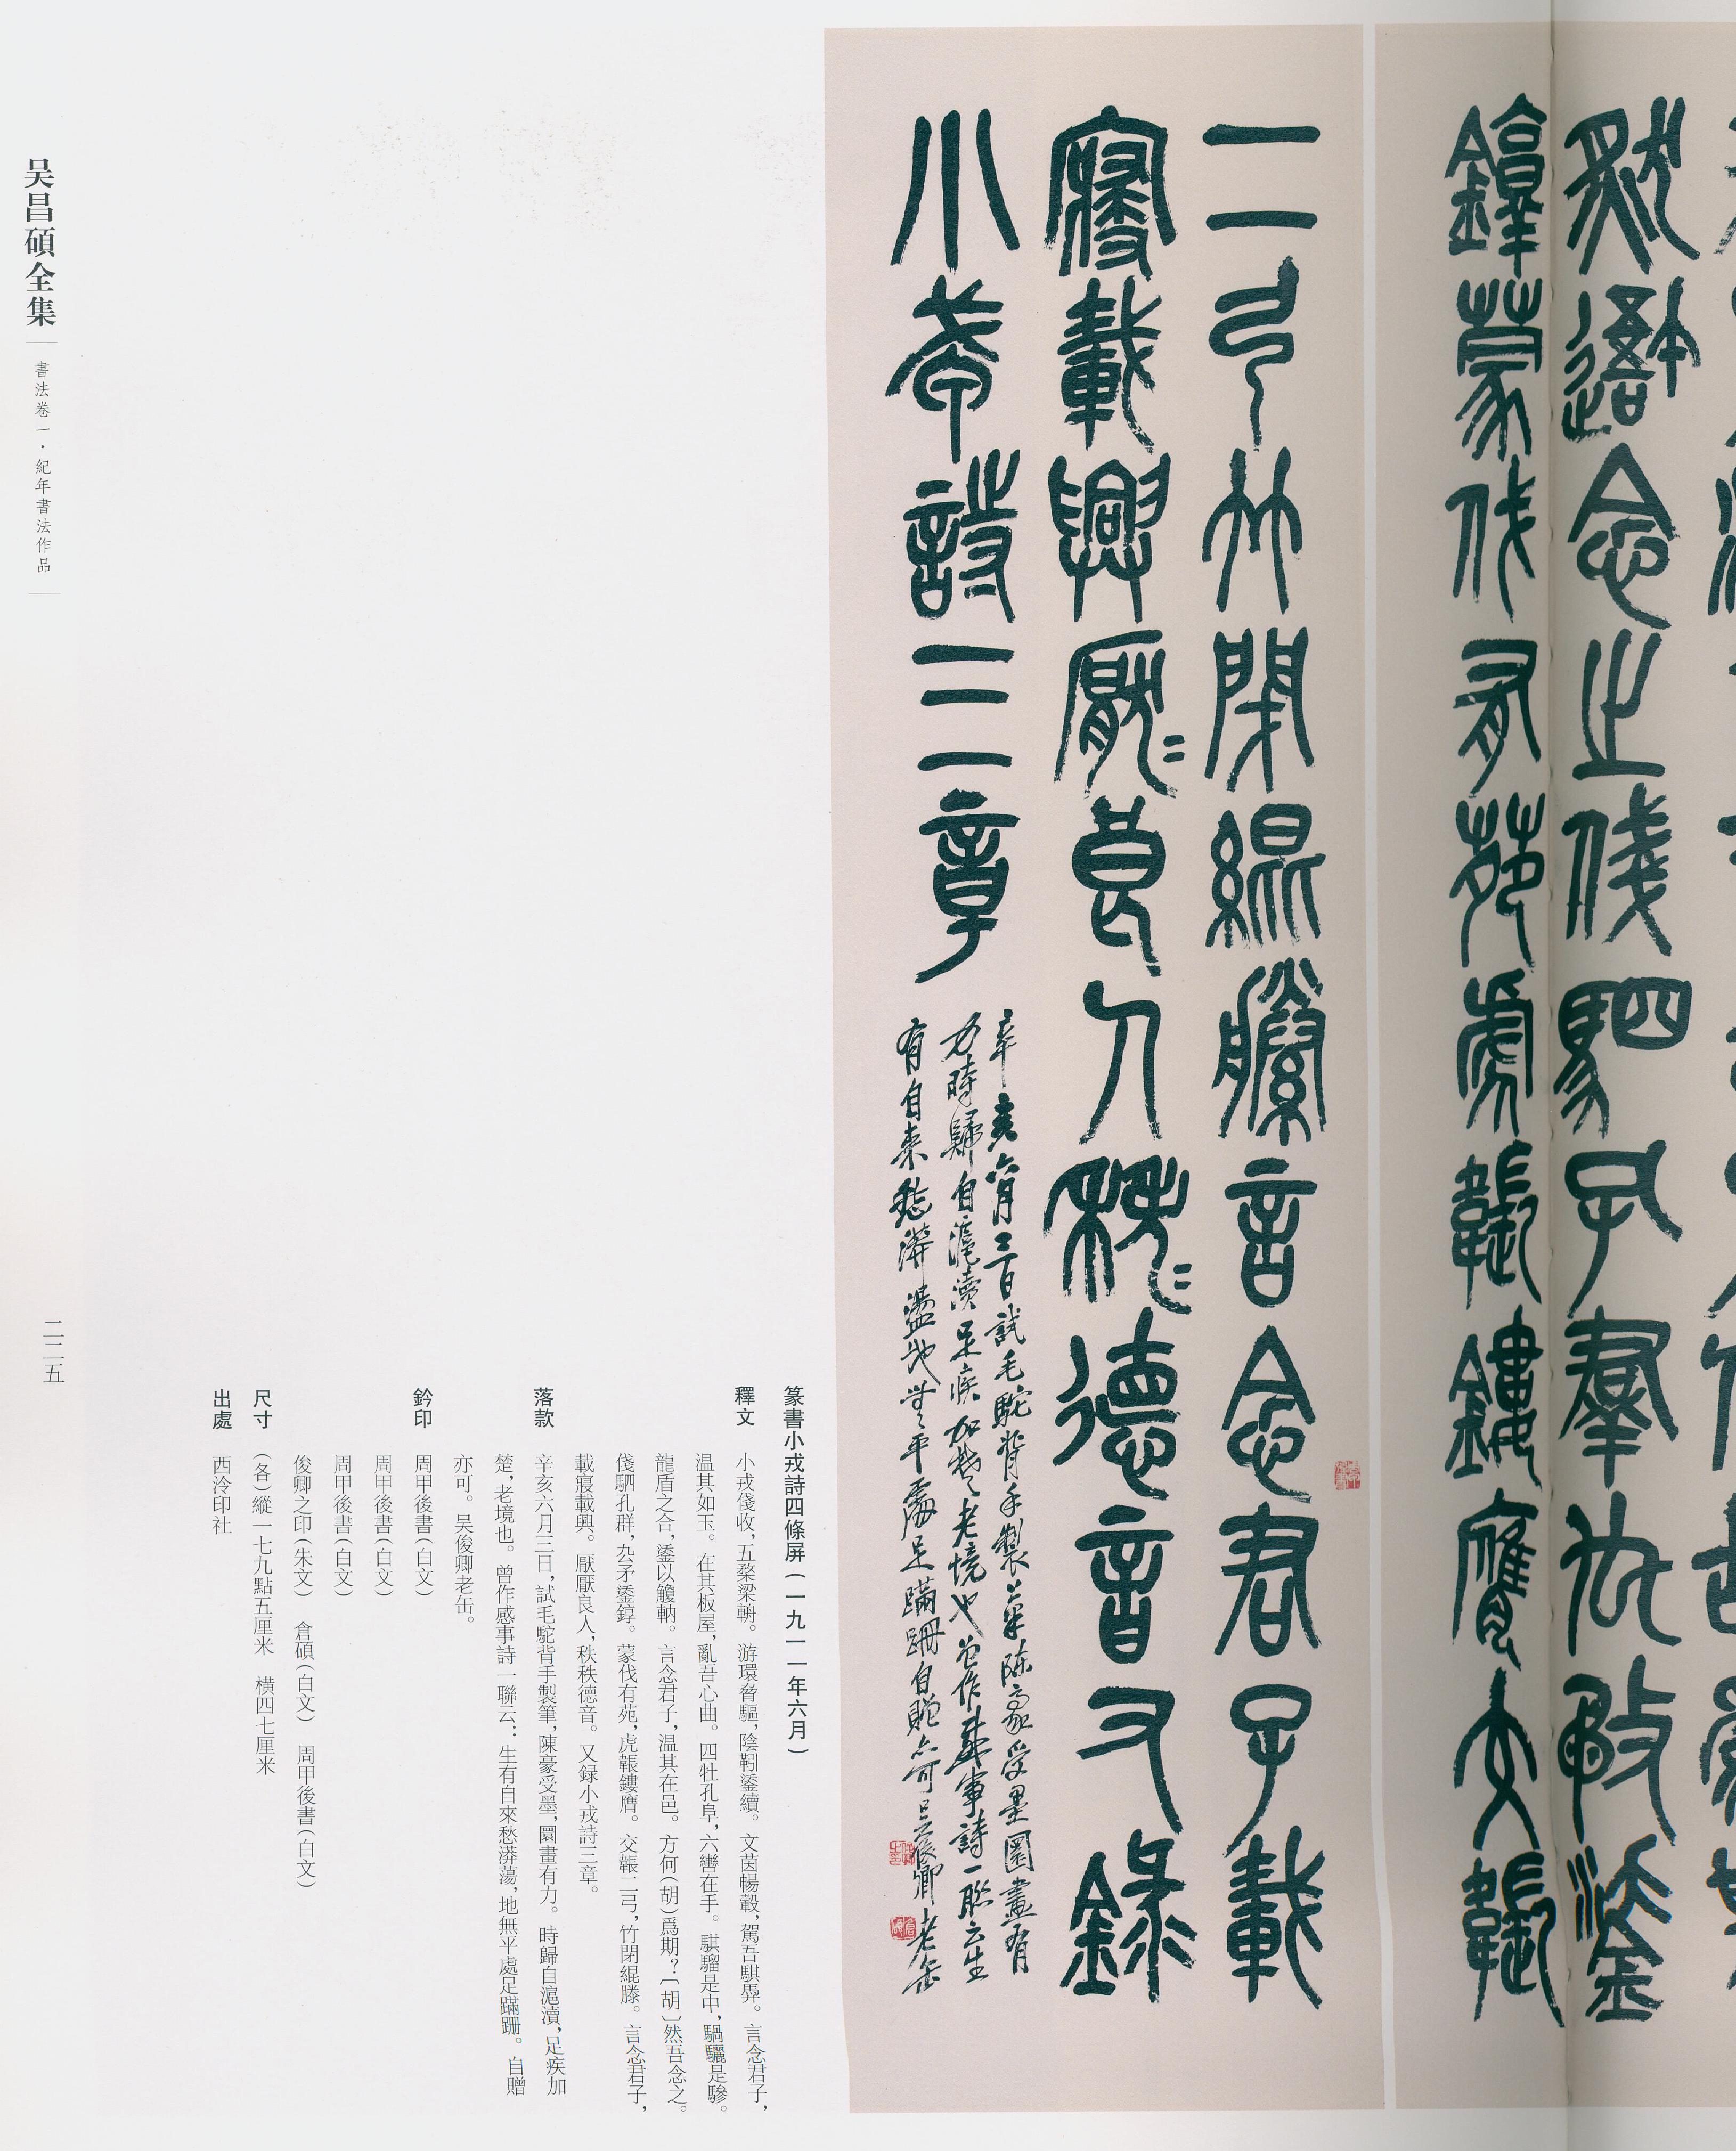 然吾念之俴駟孔羣厹矛鋈
錞蒙伐有苑虎韔鏤膺交韔
二弓竹閉緄縢言念君子載
寢載興厭〻良人秩〻德音又錄
小戎詩三章
辛亥六月三日試毛駝背手製筆陳豪受墨圜畫有
力時歸自滬瀆足疾加楚〻老境也曾作感事詩一聯云生
有自來愁漭盪地無平處足蹣跚自贈亦可吳俊卿老缶
篆書小戎詩四條屏(一九一一年六月)
釋文 小戎俴收,五楘梁輈。游環脅驅,陰靷鋈續。文茵暢轂,駕吾騏馵。言念君子,
温其如玉。在其板屋,亂吾心曲。四牡孔阜,六轡在手。騏騮是中,騧驪是驂。
龍盾之合,鋈以觼軜。言念君子,温其在邑。方何(胡)爲期?〔胡〕然吾念之。
俴駟孔群,厹矛鋈錞。蒙伐有苑,虎韔鏤膺。交韔二弓,竹閉緄縢。言念君子,
載寢載興。厭厭良人,秩秩德音。又録小戎詩三章。
落款 辛亥六月三日,試毛駝背手製筆,陳豪受墨,圜畫有力。時歸自滬瀆,足疾加
楚,老境也。曾作感事詩一聯云:生有自來愁漭蕩,地無平處足蹣跚。自贈
亦可。吴俊卿老缶。
鈐印 周甲後書(白文)
周甲後書(白文)
周甲後書(白文)
俊卿之印(朱文) 倉碩(白文) 周甲後書(白文)
尺寸 (各)縱一七九點五厘米 橫四七厘米
出處 西泠印社
吴昌碩全集
書法卷一·紀年書法作品
二二五